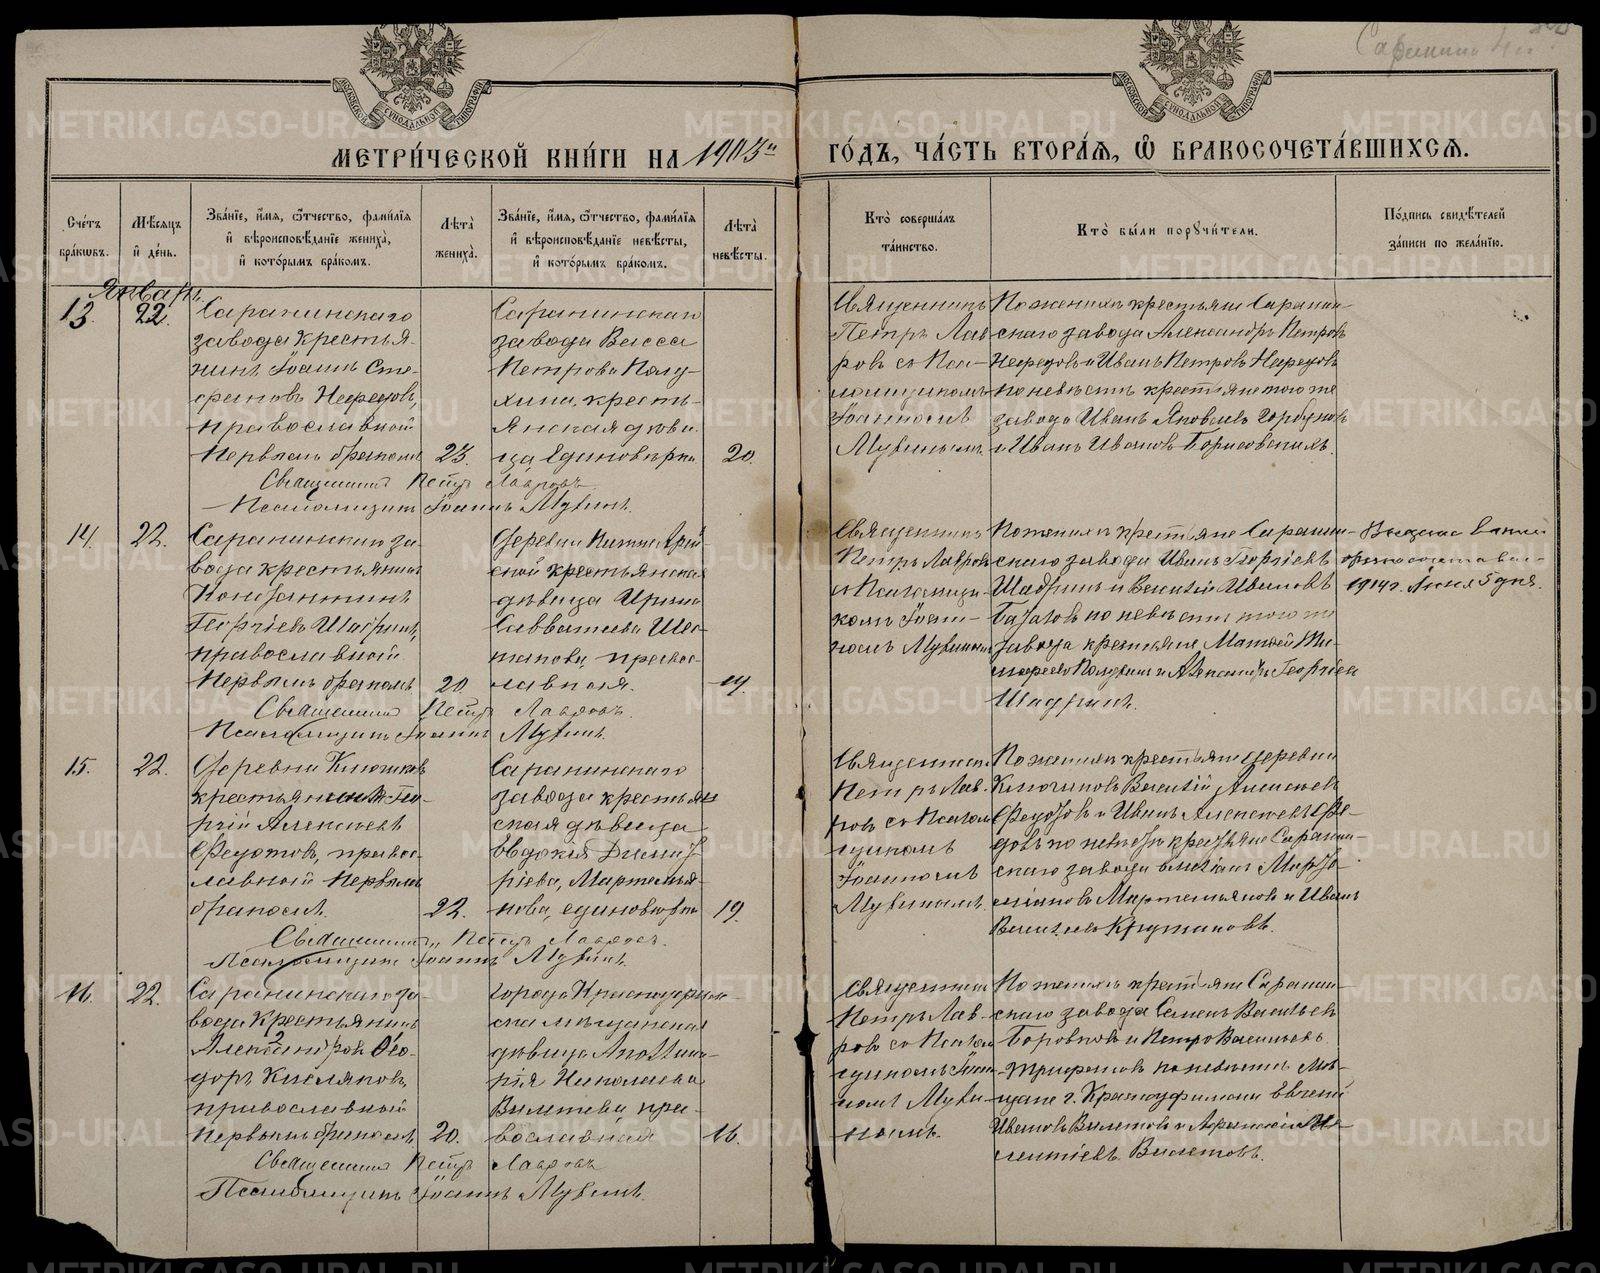 МЕТРИ́ЧЕСКОЙ КНИ́ГИ НА 1903й ГО́ДЪ, ЧА́СТЬ ВТОРА́Я, Ѽ БРАКОСОЧЕТА́ВШИХСЯ.
Сче́тъ бра́кѡвъ.
Мѣ́сяцъ и҆ де́нь.
Зва́нїе, и҆́мя, ѻ҆́тчество, фамѝлїя и҆ вѣроисповѣ́данїе жениха̀, и҆ кото́рымъ бра́комъ.
Лѣ́та жениха̀.
Зва́нїе, и҆́мя, ѻ҆́тчество, фамѝлїя и҆ вѣроисповѣ́данїе невѣ́сты, и҆ кото́рымъ бра́комъ.
Лѣ́та невѣ́сты.
Кто̀ соверша́лъ та́инство.
Кто̀ бы́ли порꙋчи́тели.
По́дпись свидѣ́телей за́писи по жела́нїю.
Январь
13.
22.
Саранинскаго
завода крестья-
нинъ Іоаннъ Сте-
фановъ Нефедовъ,
православный
первымъ бракомъ
23.
Саранинскаго
завода Васса
Петрова Полу-
хина, кресть-
янская дѣви-
ца единовѣрка
20.
Священникъ
Петръ Лав-
ровъ съ Пса-
ломщикомъ
Іоанномъ
Мувинымъ
По женихѣ крестьяне Саранин-
скаго завода Александръ Петровъ
Нефедовъ и Иванъ Петровъ Нефедовъ
по невѣстѣ крестьяне того же
завода Иванъ Яковлевъ Горбуновъ
и Иванъ Ивановъ Борисовскихъ.
Священникъ Петръ Лавровъ
Псаломщикъ Іоаннъ Мувинъ.
14.
22.
Саранинскаго за-
вода крестьянинъ
Константинъ
Георгіевъ Шадринъ,
православный
первымъ бракомъ
20
Деревни Нижне Арій-
ской крестьянская
дѣвица Ирина
Савватеева
православ-
ная.
19.
Священникъ
Петръ Лавровъ
съ Псаломщи-
комъ Іоан-
номъ Мувинымъ
По женихѣ крестьяне Саранин-
скаго завода Иванъ Георгіевъ
Шадринъ и Василій Ивановъ
по невѣстѣ того же
завода крестьяне Матвей Ти-
мофеевъ Полухинъ и Александръ Георгіев
Шадринъ.
1914г. Іюня 5 дня.
Священникъ Петръ Лавровъ.
Псаломщикъ Іоаннъ Мувинъ.
15.
22.
Деревни Ключиковъ
крестьянинъ Гео-
ргій Алексѣевъ
Федотовъ, правос-
лавный первымъ
бракомъ.
22.
Саранинскаго
завода крестьян
ская дѣвица
Евдокія Димит-
ріева, Мартемья-
нова, единовѣрка
19.
Священникъ
Петръ Лав-
ровъ съ Псалом
щикомъ
Іоанномъ
Мувинымъ.
По женихѣ крестьяне деревни
Ключиковъ Василій Алексѣевъ
Федотовъ и Иванъ Алексѣевъ Фе-
дотовъ по невѣстѣ крестьяне Саранин-
скаго завода
Мартемьяновъ и Иванъ
Васильевъ Крутиковъ.
Священникъ Петръ Лавровъ.
Псаломщикъ Іоаннъ Мувинъ.
16.
22.
Саранинскаго за-
вода крестьянинъ
Александровъ Ѳео-
доръ Кисляковъ,
православный
первымъ бракомъ
20.
Города Красноуфимск-
ска мѣщанская
дѣвица Аполлина-
рія Николаева
Вилетова, пра-
вославная
16.
Священникъ
Петръ Лав-
ровъ съ Псалом
щикомъ Іоан-
номъ Муви-
нымъ.
По женихѣ крестьяне Саранин-
скаго завода Семенъ Васильевъ
Боровковъ и Петръ Васильевъ
Трифановъ по невѣстѣ мѣ-
щане г. Красноуфимска Евгеній
Ивановъ Вилетовъ и
Вилетовъ.
Священникъ Петръ Лавровъ
Псаломщикъ Іоаннъ Мувинъ.
METRIKI.GASO-URAL.RU